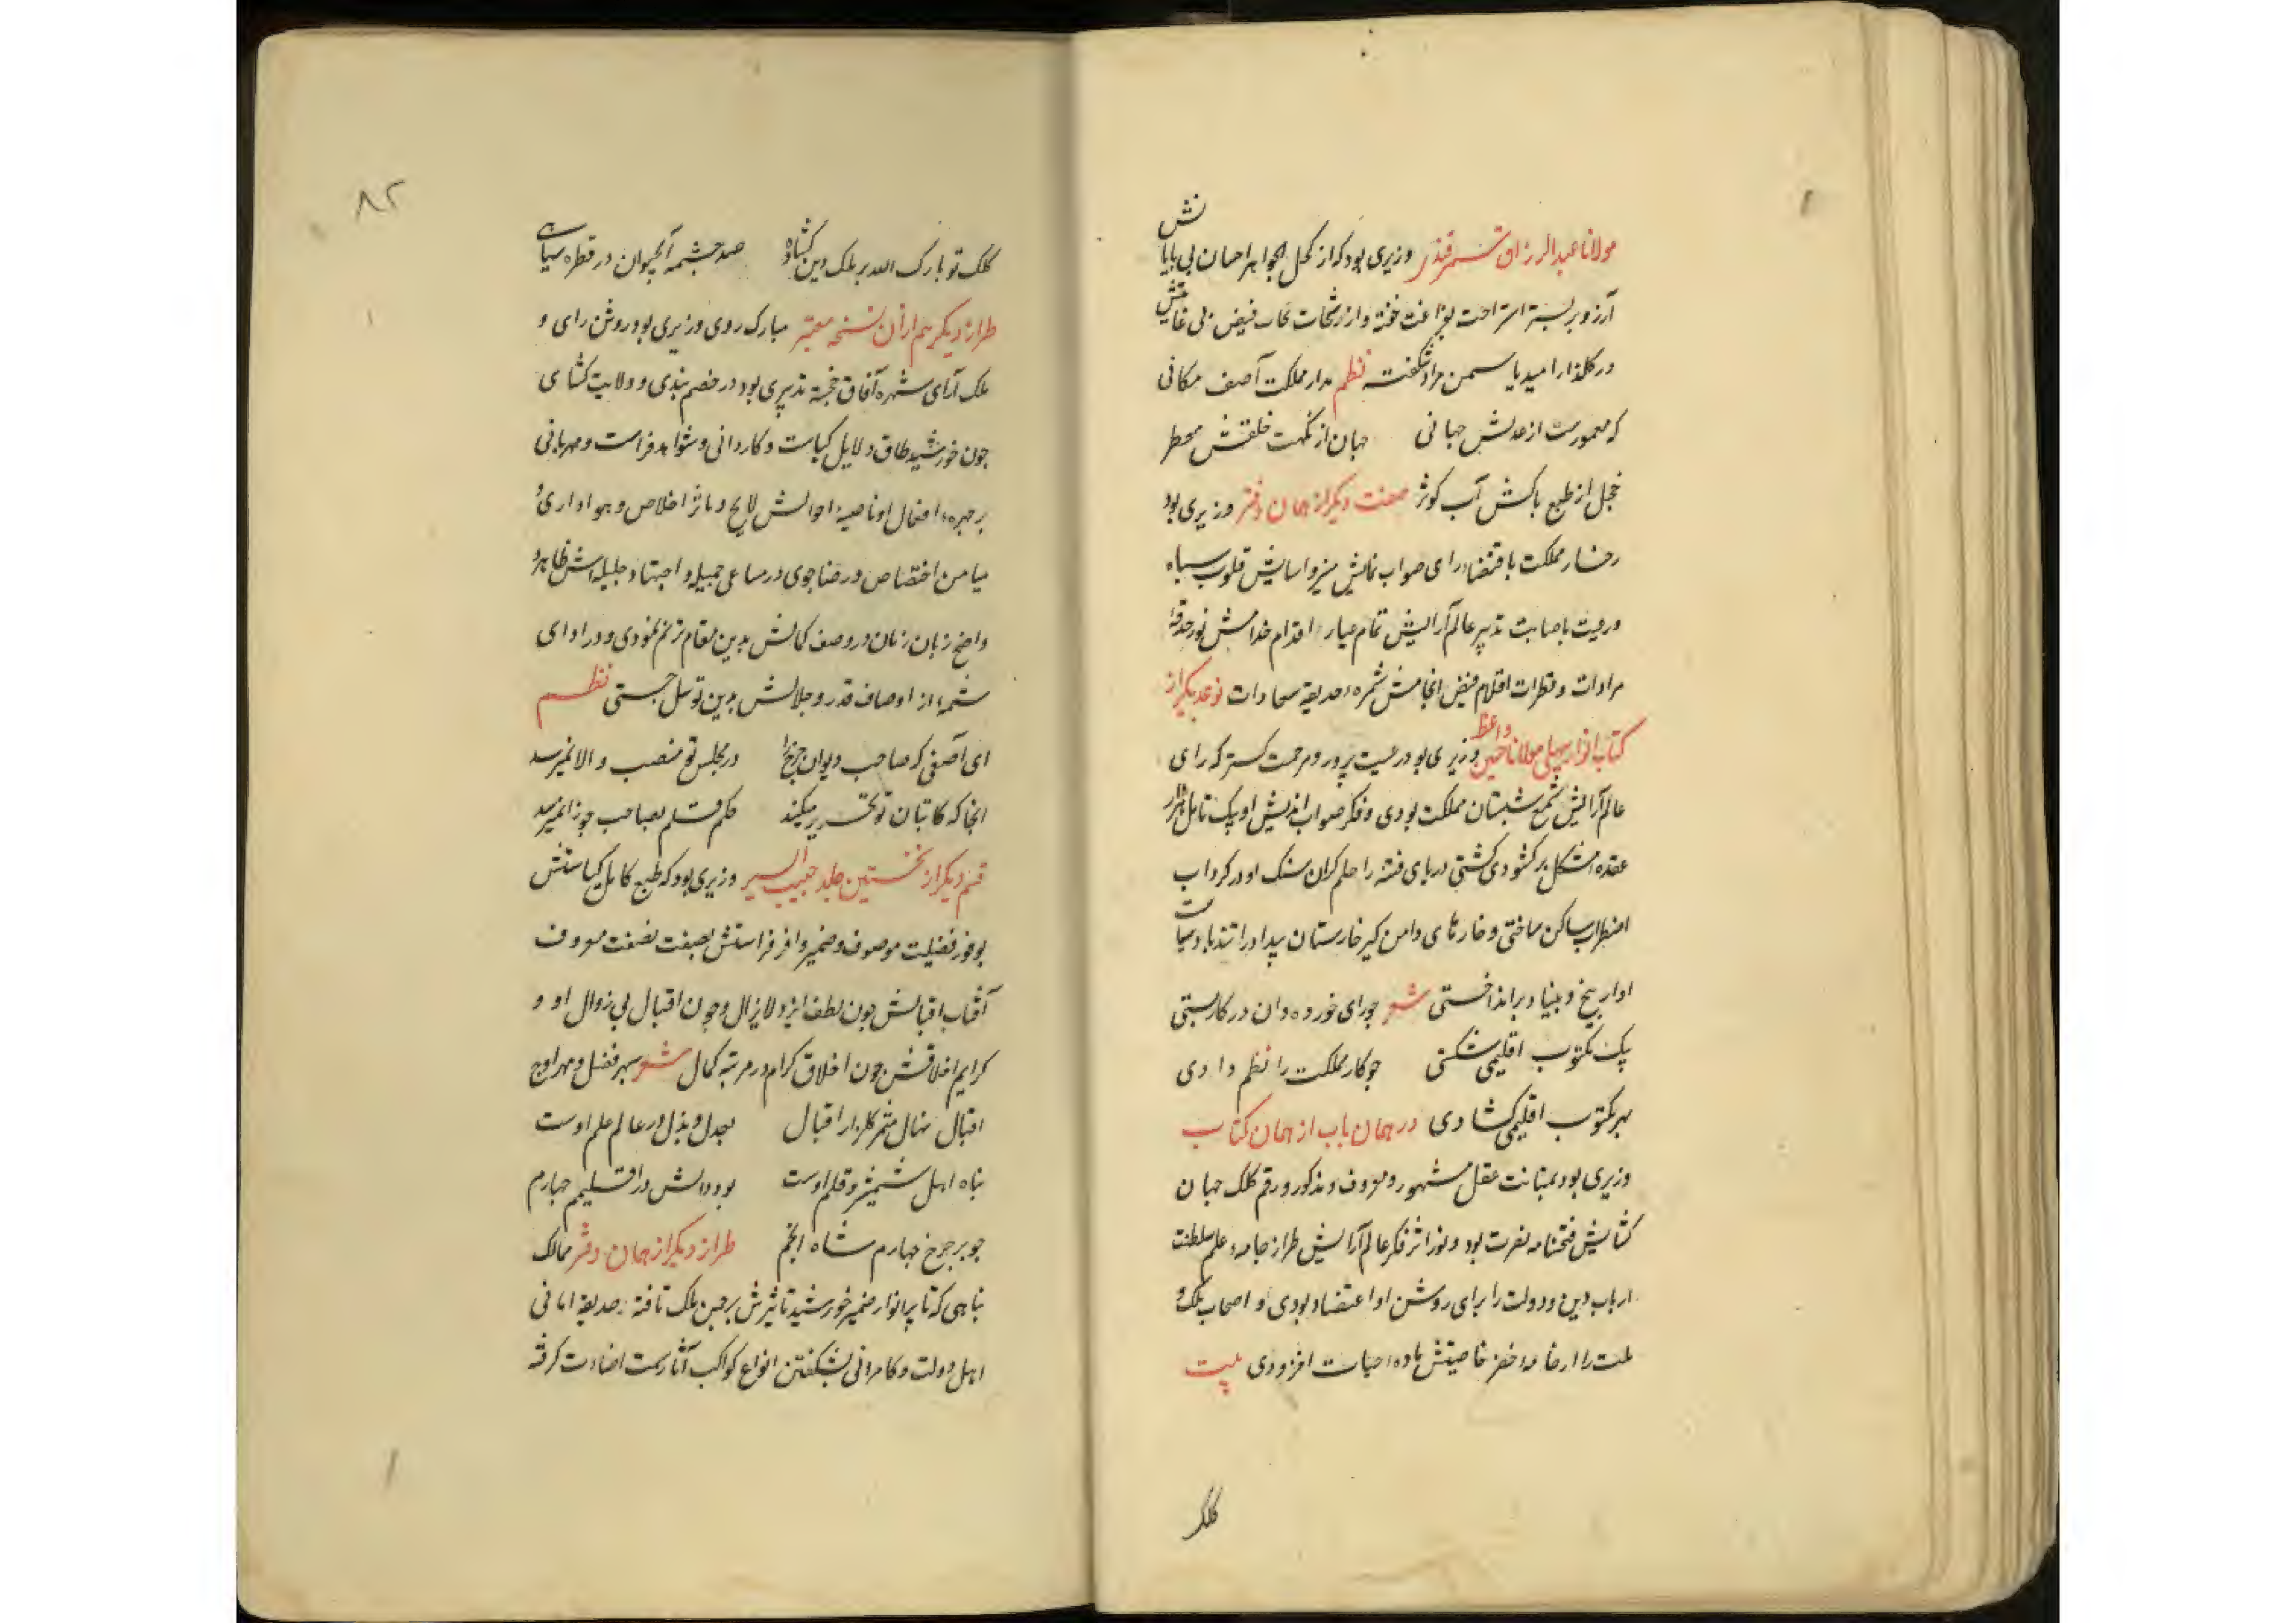 مولانا عبدالرزاق سمرقندی وزیری بود که از کحل الجواهر احسان بی پایانش
آرزو بر بستر استراحت بفراغت خفته و از رشحات سحاب فیض بی غایتش
در گلزار امید یاسمن مراد شکفته نظم مدار مملکت آصف مکانی
که معمورست از عدلش جهانی جهان از نکهت خلقش معطر
خجل از طبع پاکش آب کوثر صفت دیگر از همان دفتر وزیری بود
رخسار مملکت باقتضاء رای صواب نمایش منیر و اسایش قلوب سپاه
و رعیت باصابت تدبیر عالم آرایش تمام عیار اقدام خدامش نور حدقۀ
مرادات و قطرات اقلام فیض انجامش ثمره حدیقه سعادات نوعدیگر از
کتاب انوار سهیلی مولانا حسین واعظ وزیری بود رعیت پرور و مرحمت گستر که رای
عالم آرایش شمع شبستان مملکت بودی و فکر صواب اندیش او بیک تامل هزار
عقده مشکل بر کشودی کشتی دریای فتنه را حلم گران سنک او در گرداب
اضطراب ساکن ساختی و خارهای دامن گیر خارستان بیداد را تندباد سیاست
او از بیخ و بنیاد برانداختی شعر چو رای خورده دان در کار بستی
بیک مکتوب اقلیمی شکستی چو کار مملکت را نظم دادی
بهر مکتوب اقلیمی کشادی در همان باب از همان کتاب
وزیری بود بمتانت عقل مشهور و معروف و مذکور و رقم کلک جهان
کشایش فتحنامه نصرت بود و نور اثر فکر عالم آرایش طراز جامه علم سلطنت
ارباب دین و دولت را برای روشن او اعتضاد بودی و اصحاب ملک و
ملت را از خامه خضر خاصیتش ماده حیات افزودی بیت
کلک
۸۲
کلک تو بارک الله بر ملک دین کشاده صد چشمه آبحیوان در قطره سیاهی
طراز دیگر هم از آن نسخه معتبر مبارک روی وزیری بود روشن رای و
ملک آرای شهره آفاق خجسته تدبیری بود در خصم بندی و ولایت کشای
چون خورشید طاق دلایل کیاست و کاردانی و شواهد فراست و مهربانی
بر چهره افعال او ناصیه احوالش لایح و ماثر اخلاص و هواداری و
میامن اختصاص و رضا جوی در مساعی جمیله و اجتهاد جلیله اش ظاهر و
واضح زبان زمان در وصف کمالش بدین مقام ترنم نمودی و در ادای
شمه از اوصاف قدر و جلالش بدین توسل جستی نظم
ای آصفی که صاحب دیوان چرخ را در مجلس تو منصب والا نمیرسد
انجا که کاتبان تو تحریر میکنند حکم قلم بصاحب جوزا نمیرسد
قسم دیگر از نخستین جلد حبیب السیر وزیری بود که طبع کامل کیاستش
بوفور فضیلت موصوف و ضمیر وافر فراستش بصفت نصفت معروف
آفتاب اقبالش چون لطف ایزد لایزال و چون اقبال بی زوال او و
کرایم اخلاقش چون اخلاق کرام در مرتبه کمال شعر سپهر فضل و مهر اوج
اقبال نهال مثمر گلزار اقبال بعدل و بذل در عالم علم اوست
پناه اهل شمشیر و قلم اوست بود رایش در اقلیم چهارم
چو بر چرخ چهارم شاه انجم طراز دیگر از همان دفتر ممالک
پناهی که تا پرانوار ضمیر خورشید تاثیرش بر جبین ملک تافته حدیقه امانی
اهل دولت و کامرانی بشکفتن انواع کواکب آثار سمت اضاءت گرفته